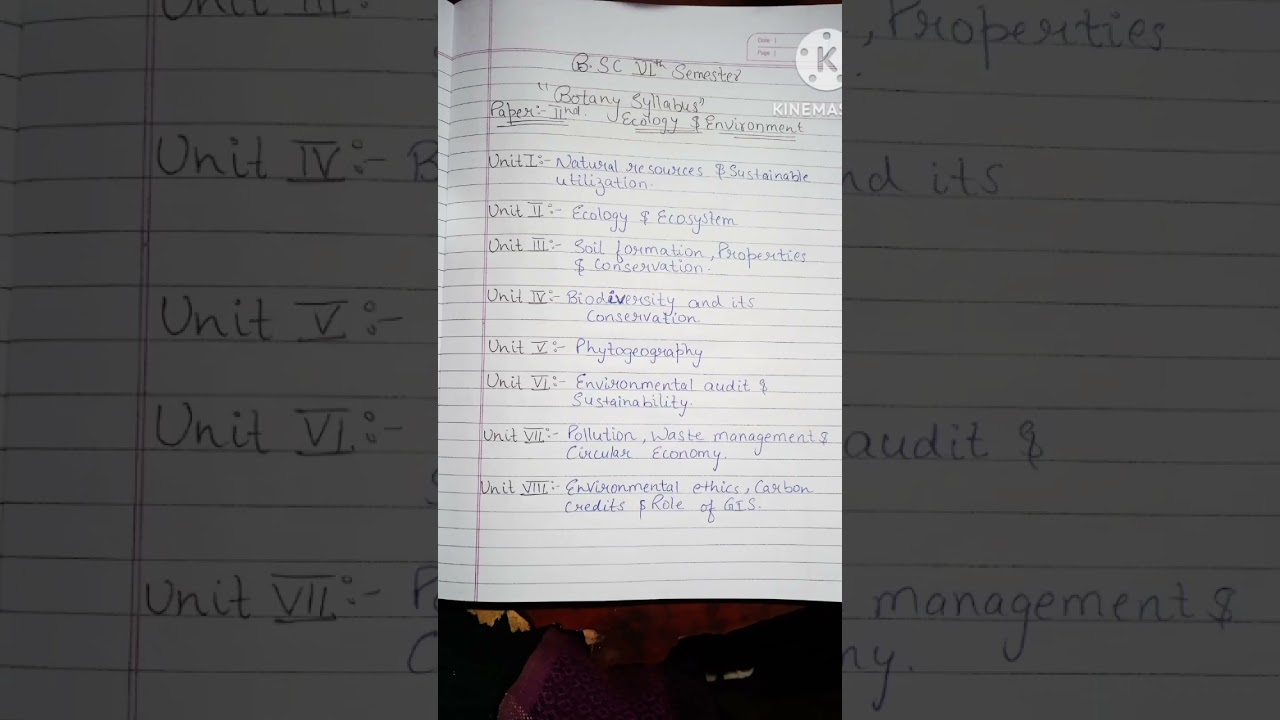 Date |
Page |
KINEMAS
B.SC VIth Semester
"Botany Syllabus"
Paper:- IInd. Ecology & Environment
Unit I:- Natural resources & Sustainable
utilization.
Unit II:- Ecology & Ecosystem
Unit III:- Soil formation, Properties
& Conservation.
Unit IV:- Biodiversity and its
Conservation.
Unit V:- Phytogeography
Unit VI:- Environmental audit &
Sustainability.
Unit VII:- Pollution, Waste management &
Circular Economy.
Unit VIII:- Environmental ethics, Carbon
Credits & Role of GIS.
Unit III:
, Properties
Unit IV:- B
nd its
Unit V:-
Unit VI:-
audit &
Unit VII:- P
management &
C
ny.